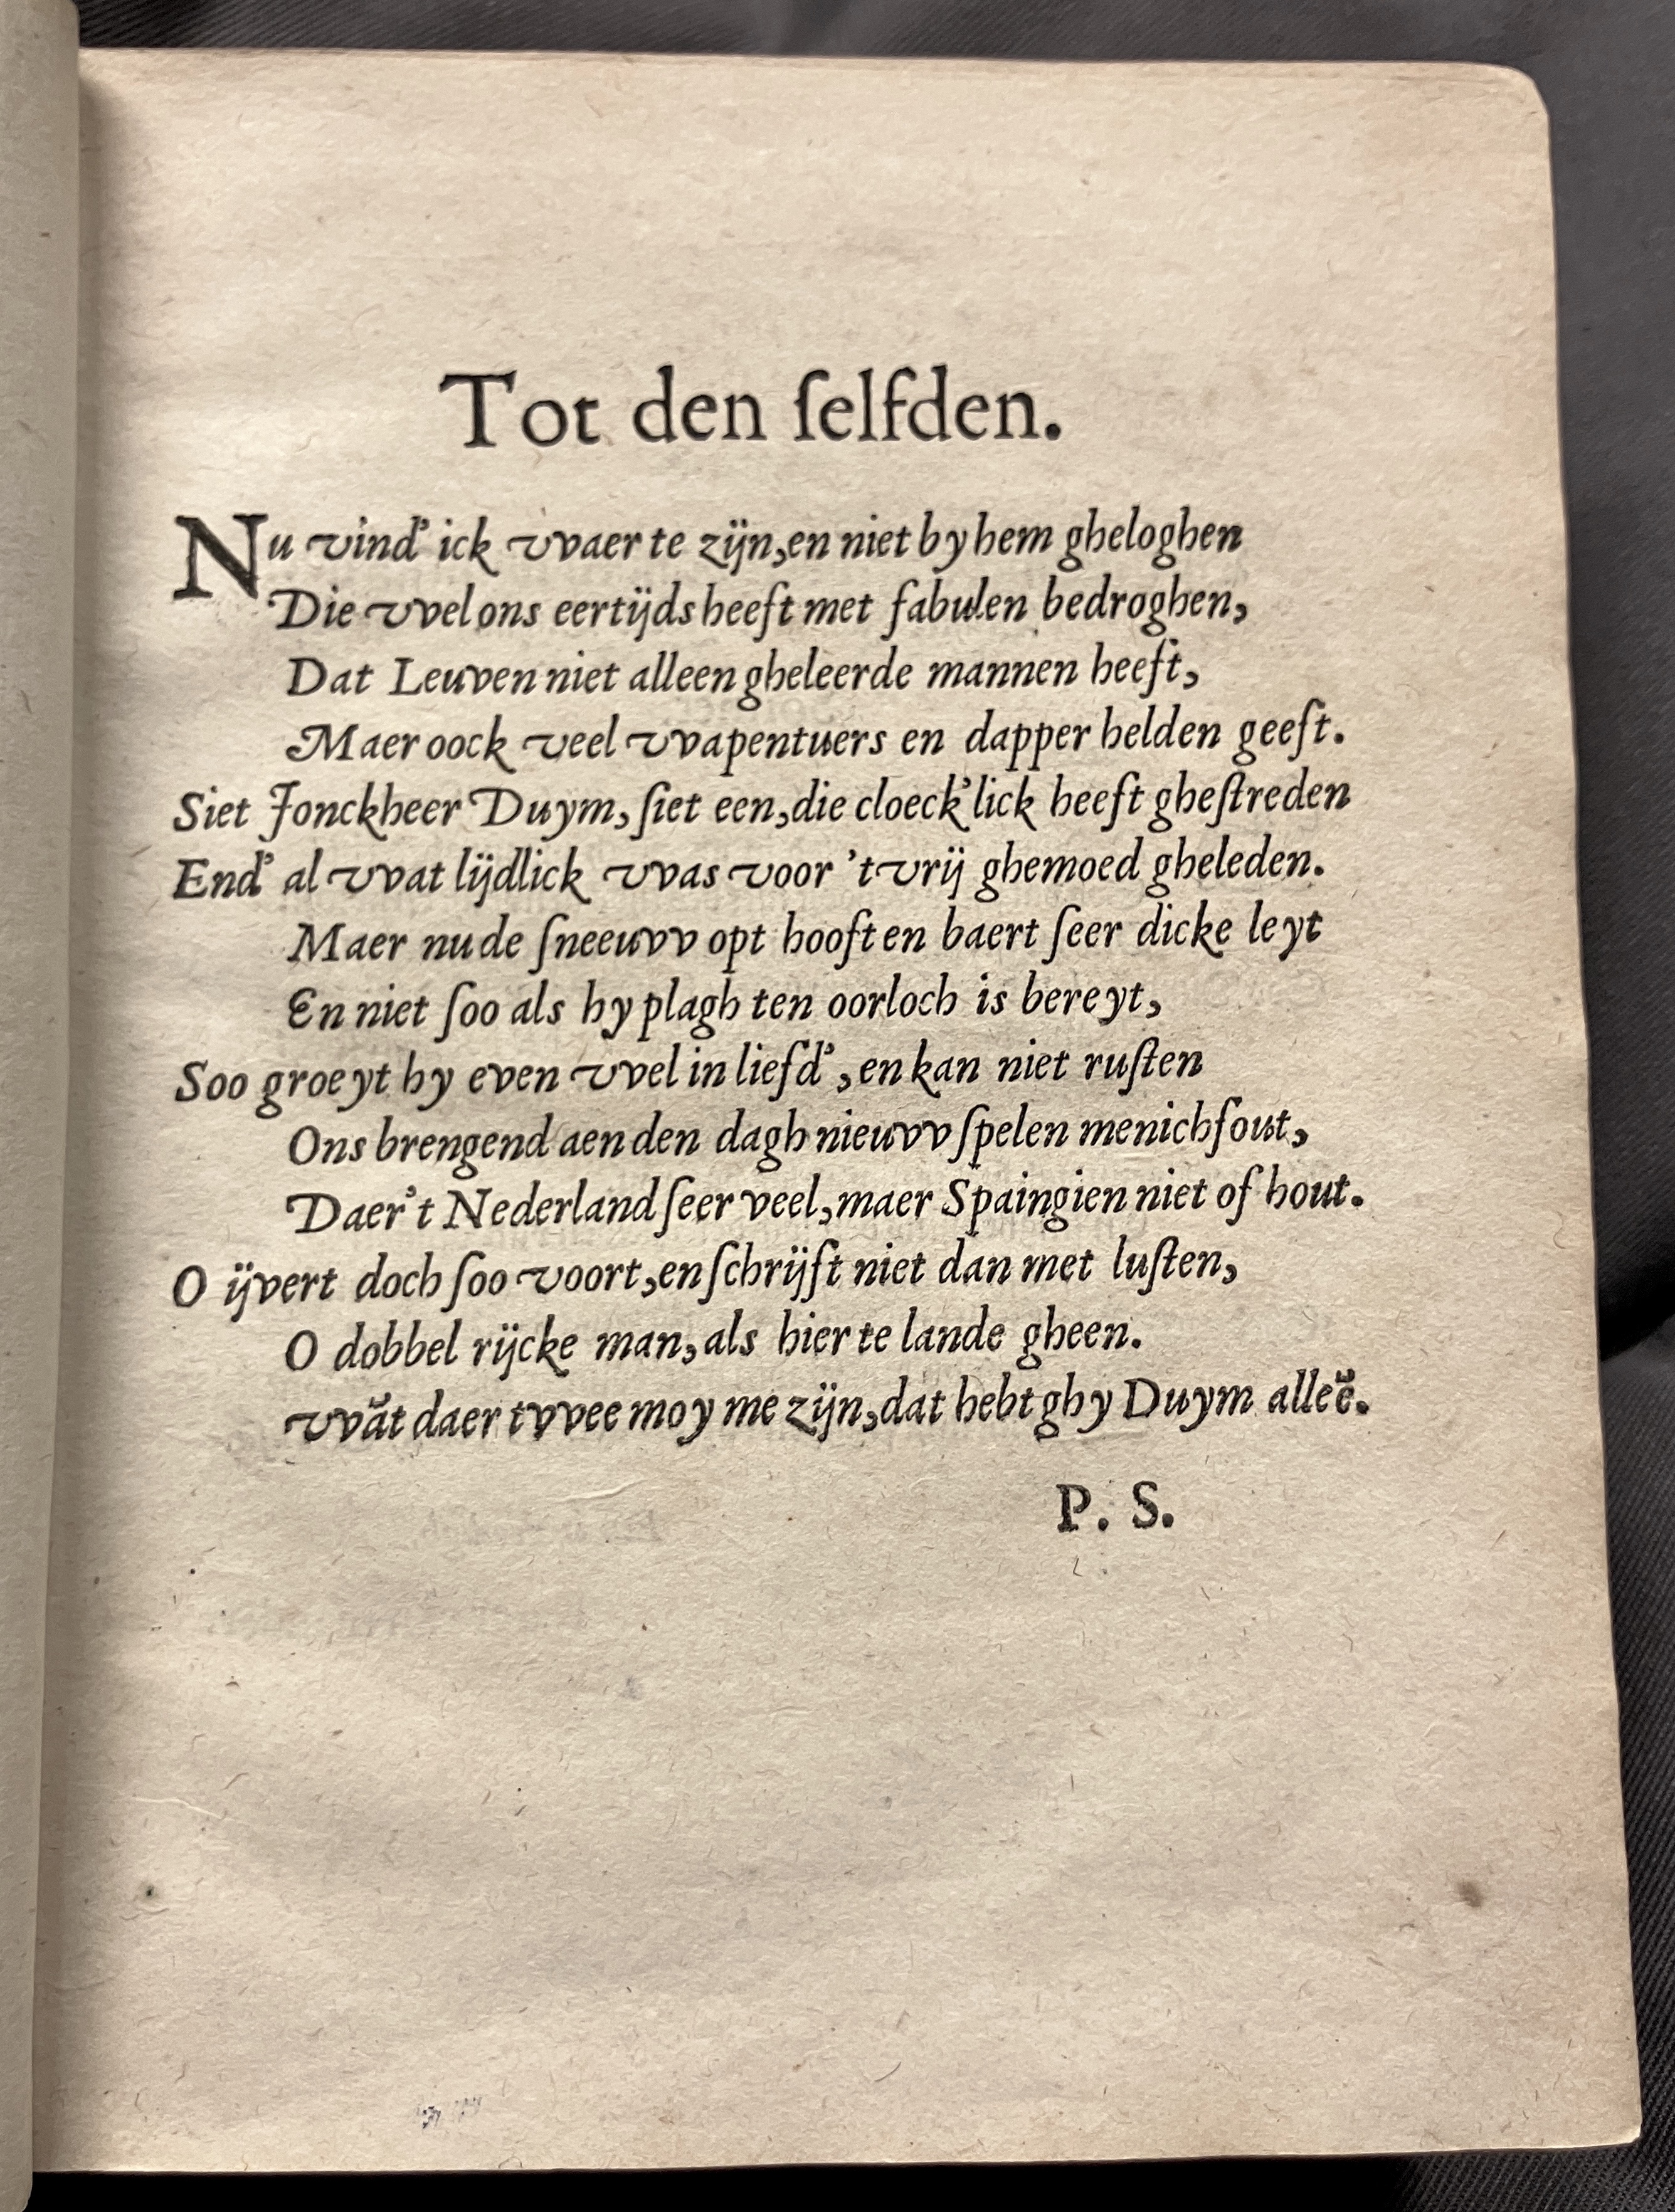 Tot den ſelfden.
Nu vind' ick vvaer te zijn, en niet by hem gheloghen
Die vvel ons eertijds heeft met fabulen bedroghen,
Dat Leuven niet alleen gheleerde mannen heeft,
Maer oock veel vvapentuers en dapper helden geeft.
Siet Jonckheer Duym, ſiet een, die cloeck'lick heeft gheſtreden
End' al vvat lijdlick vvas voor 't vrij ghemoed gheleden.
Maer nu de ſneeuvv opt hooft en baert ſeer dicke leyt
En niet ſoo als hy plagh ten oorloch is bereyt,
Soo groeyt hy even vvel in liefd', en kan niet ruſten
Ons brengend aen den dagh nieuvv ſpelen menichfout,
Daer't Nederland ſeer veel, maer Spaingien niet of hout.
O ijvert doch ſoo voort, en ſchrijft niet dan met luſten,
O dobbel rijcke man, als hier te lande gheen.
vvãt daer tvvee moy me zijn, dat hebt ghy Duym alleẽ.
P. S.